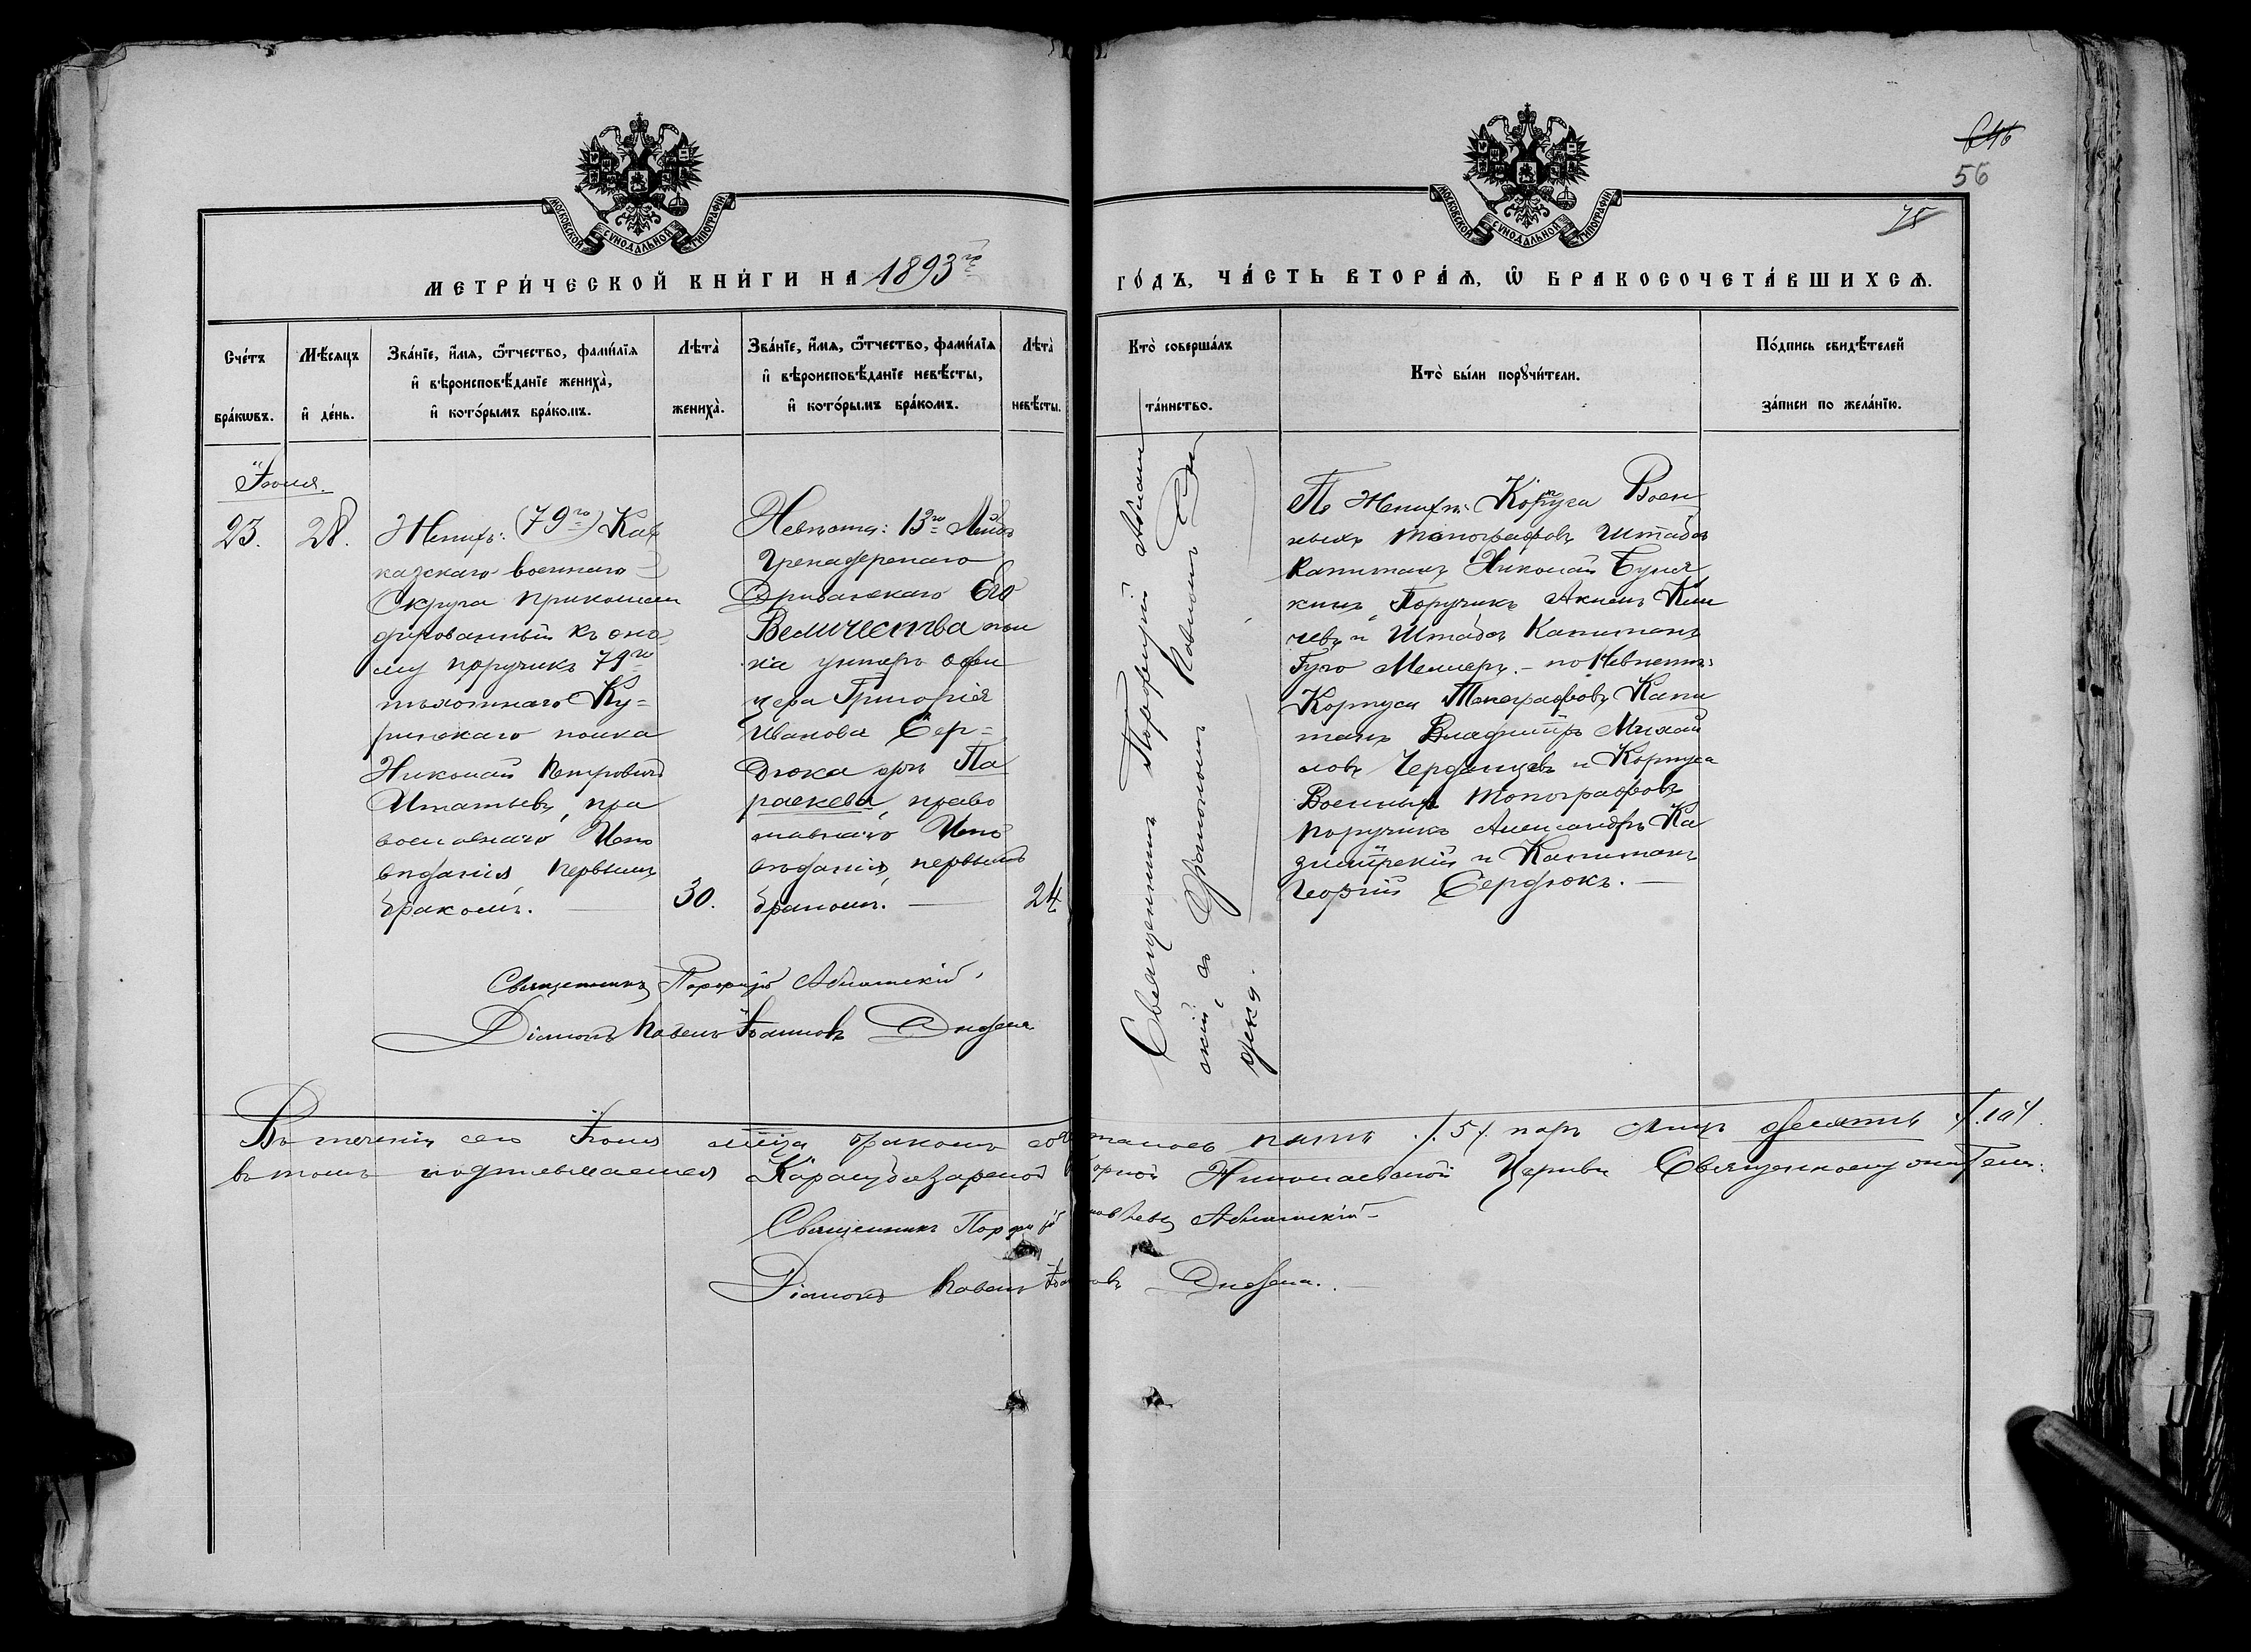 646
56
75
МОСКОВСКОЙ СѴНОДАЛЬНОЙ ТИПОГРАФІИ
МОСКОВСКОЙ СѴНОДАЛЬНОЙ ТИПОГРАФІИ
МЕТРИ́ЧЕСКОЙ КНИ́ГИ НА 1893й
ГО́ДЪ, ЧА́СТЬ ВТОРА́Ѧ, Ѽ БРАКОСОЧЕТА́ВШИХСѦ.
Сче́тъ бра́кѡвъ.
Мѣ́сяцъ и҆ де́нь.
Зва́нїе, и҆́мѧ, ѻ҆́тчество, фами́лїѧ и҆ вѣроисповѣ́данїе жениха̀, и҆ кото́рымъ бра́комъ.
Лѣта̀ жениха̀.
Зва́нїе, и҆́мѧ, ѻ҆́тчество, фами́лїѧ и҆ вѣроисповѣ́данїе невѣ́сты, и҆ кото́рымъ бра́комъ.
Лѣта̀ невѣ́сты.
Кто̀ соверша́лъ та́инство.
Кто̀ бы́ли порꙋчи́тели.
По́дпись свидѣ́телей за́писи по жела́нїю.
Іюня.
23.
28.
Женихъ: (79го) Кав
казскаго военнаго
Округа прикоман
дированный къ оно
му поручикъ 79го
пѣхотнаго Ку=
ринскаго полка
Николай Петровичъ
Игнатьевъ, пра
вославнаго Испо
вѣданія первымъ
бракомъ.
30.
Невѣста: 13го Лейбъ
Гренадерскаго
Эриванскаго Его
Величества пол
ка унтеръ офи
цера Григорія
Иванова Сер=
дюка дочь Па
раскева, право
славнаго Испо
вѣданія, первымъ
бракомъ.
24
Священникъ Порфирій
скій съ Діакономъ Павломъ
По Женихѣ: Корпуса Воен
ныхъ топографовъ Штабсъ
Капитанъ Николай Буня
кинъ, Поручикъ
и Штабсъ Капитанъ
Гуго Меллеръ. - по Невѣстѣ:
Корпуса Топографовъ Капи
танъ Владиміръ Михай
ловъ Черданцевъ и Корпуса
Военныхъ топографовъ
поручикъ Александръ Ка
зимірскій и Капитанъ
Георгій Сердюкъ.
Священникъ Порфирій
Діаконъ Павелъ Іоанновъ
Въ теченіи сего Іюня мѣца бракомъ сочеталось пять ./.5/. паръ лицъ десять ./.10/.
въ томъ подписываемся Карасубазарской Соборной Николаевской Церкви Священнослужители:
Священникъ Порфирій
Діаконъ Павелъ Іоанновъ